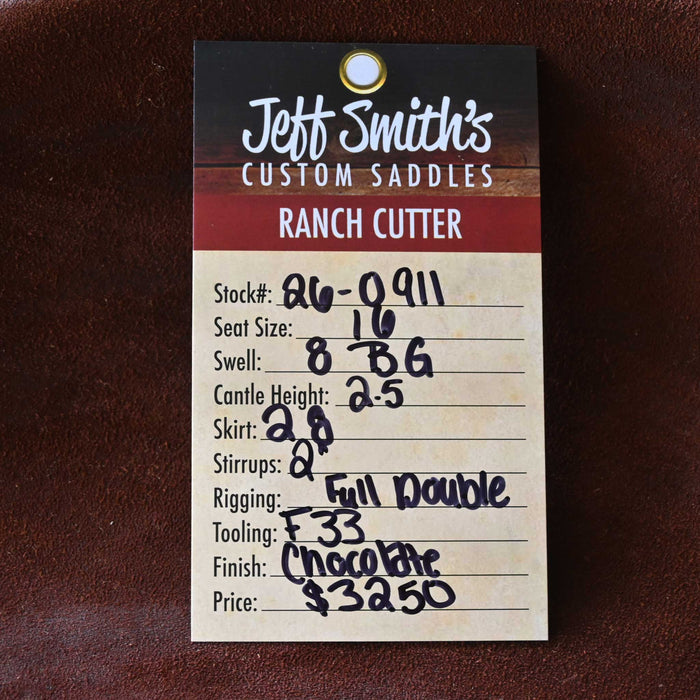 Jeff Smith's
CUSTOM SADDLES
RANCH CUTTER
Stock#: 26-0911
Seat Size: 16
Swell: 8 BG
Cantle Height: 2.5
Skirt: 28
Stirrups: 2"
Rigging: Full Double
Tooling: F33
Finish: Chocolate
Price: $3250